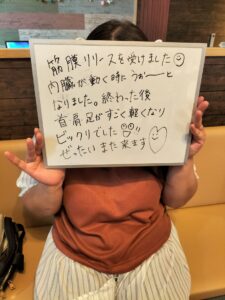 筋膜リリースを受けました
内臓が動く時にうぉ〜〜と
なりました。終わった後
首肩足がすごく軽くなり
ビックリでした!!
ぜったいまた来ます